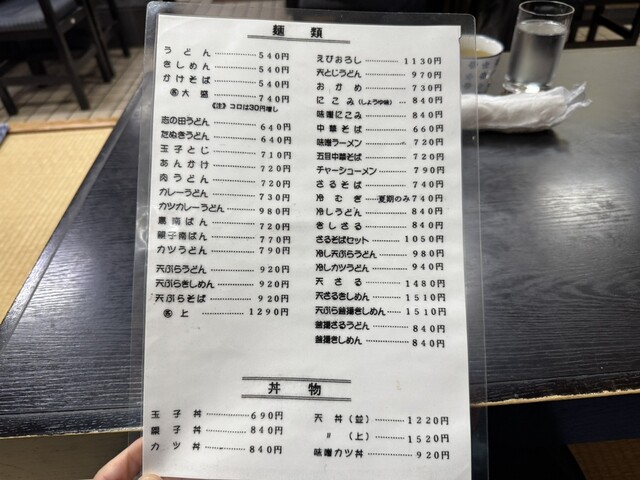 麺 類
うどん…………540円
きしめん…………540円
かけそば…………540円
大盛…………740円
《注》コロは30円増し
志の田うどん…………640円
たぬきうどん…………640円
玉子とじ…………710円
あんかけ…………720円
肉うどん…………720円
カレーうどん…………730円
カツカレーうどん…………980円
鳥南ばん…………720円
親子南ばん…………770円
カツうどん…………790円
天ぷらうどん…………920円
天ぷらきしめん…………920円
天ぷらそば…………920円
上…………1290円
えびおろし…………1130円
天とじうどん…………970円
おかめ…………730円
にこみ(しょうゆ味)…840円
味噌にこみ…………840円
中華そば…………660円
味噌ラーメン…………720円
五目中華そば…………720円
チャーシューメン…………790円
ざるそば…………740円
冷むぎ…夏期のみ740円
冷しうどん…………840円
きしざる…………840円
ざるそばセット…………1050円
冷し天ぷらうどん…………980円
冷しカツうどん…………940円
天ざる…………1480円
天ざるきしめん…………1510円
天ぷら釜揚きしめん…………1510円
釜揚ざるうどん…………840円
釜揚きしめん…………840円
丼 物
玉子丼…………690円
親子丼…………840円
カツ丼…………840円
天丼(並)…………1220円
〃(上)…………1520円
味噌カツ丼…………920円